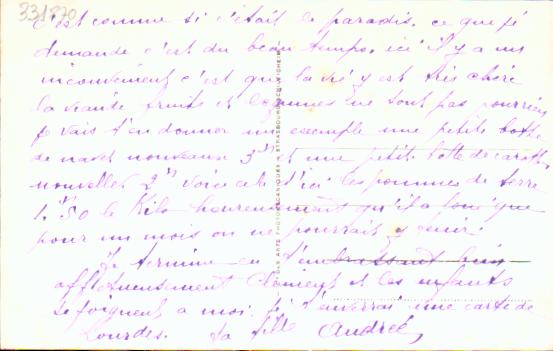 331870
c'est comme si c'était le paradis. ce que je
demande c'est du beau temps. ici il y a un
inconvénient c'est que la vie y est très chère
la viande fruits et légumes ne sont pas pour rien
je vais t'en donner un exemple une petite botte
de navet nouveaux 3 et une petite botte de carotte
nouvelles 2 voici celle d'ici les pommes de terre
1.50 le Kilo heureusement qu'il a loué que
pour un mois on ne pourrait y tenir
Je termine en t'embrassant bien
affectueusement Clément et les enfants
se joignent a moi. je t'enverrai une carte de
Lourdes. ta fille Andrée
ARTS PHOTOMÉCANIQUES - STRASBOURG-SCHILTIGHEIM